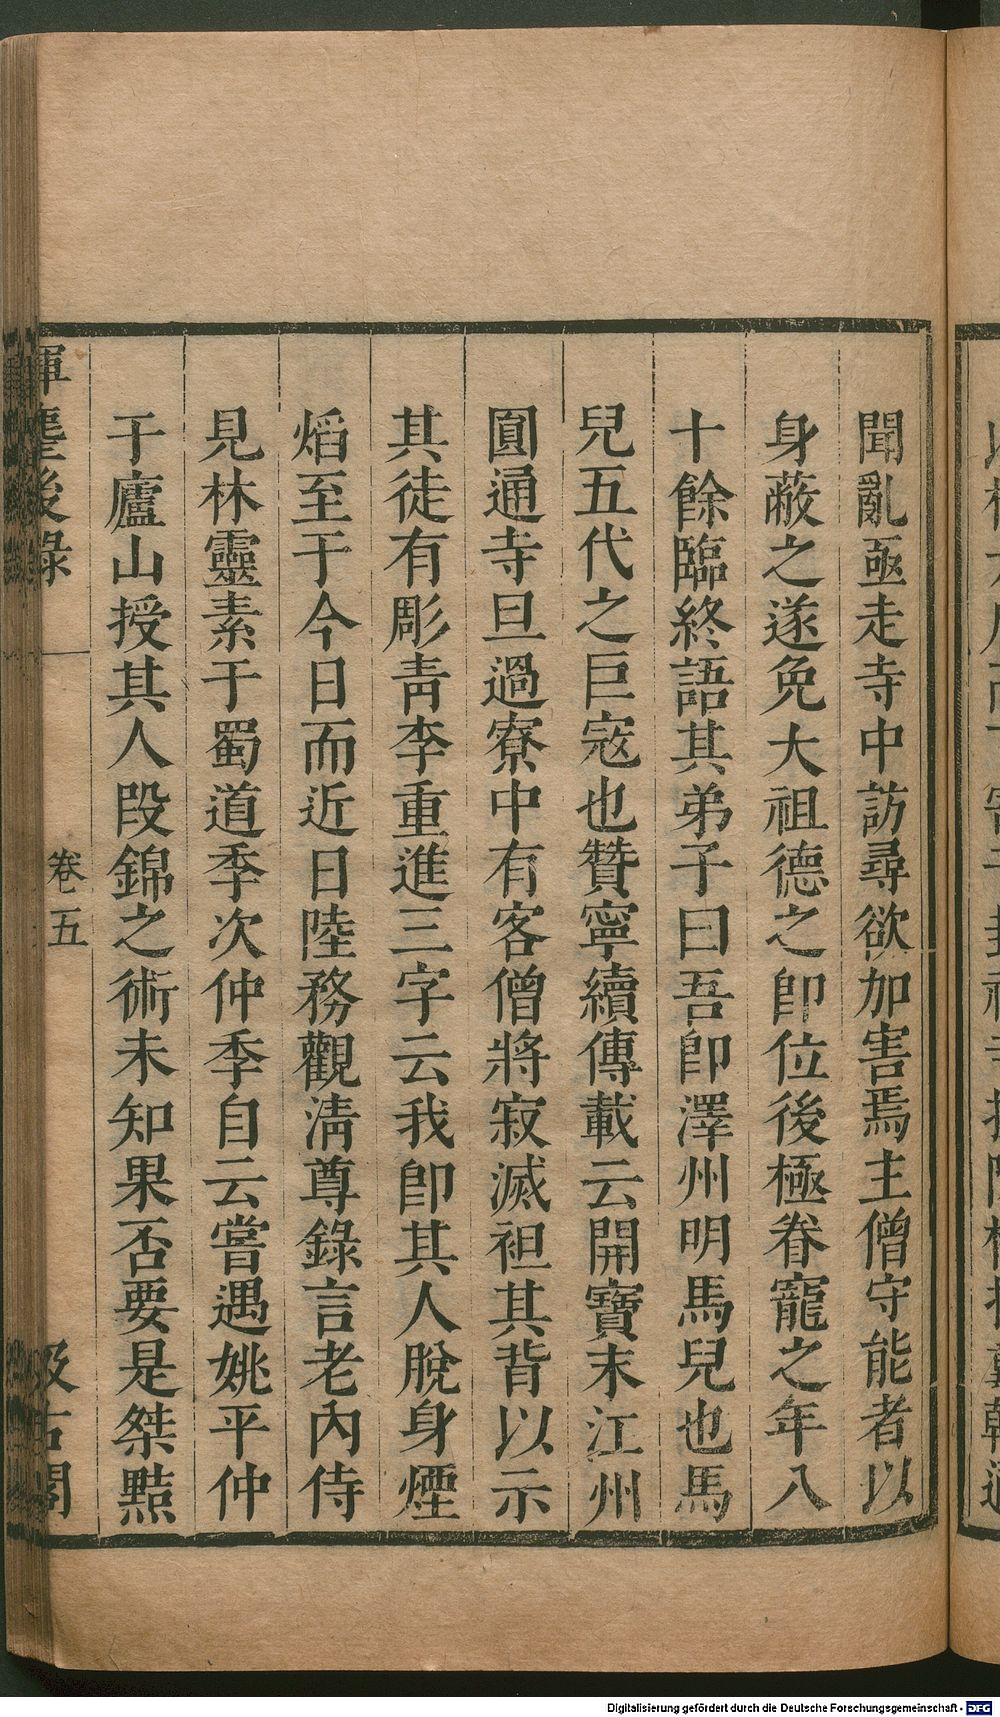 聞亂亟走寺中訪尋欲加害焉主僧守能者以
身蔽之遂免大祖德之卽位後極眷寵之年八
十餘臨終語其弟子曰吾卽澤州明馬兒也馬
兒五代之巨寇也贊寧續傳載云開寶末江州
圓通寺旦過寮中有客僧將寂滅袒其背以示
其徒有彫靑李重進三字云我卽其人脫身煙
焰至于今日而近日陸務觀淸尊錄言老內侍
見林靈素于蜀道季次仲季自云嘗遇姚平仲
于廬山授其人段錦之術未知果否要是桀黠
揮麈後錄
卷五
汲古閣
Digitalisierung gefördert durch die Deutsche Forschungsgemeinschaft - DFG